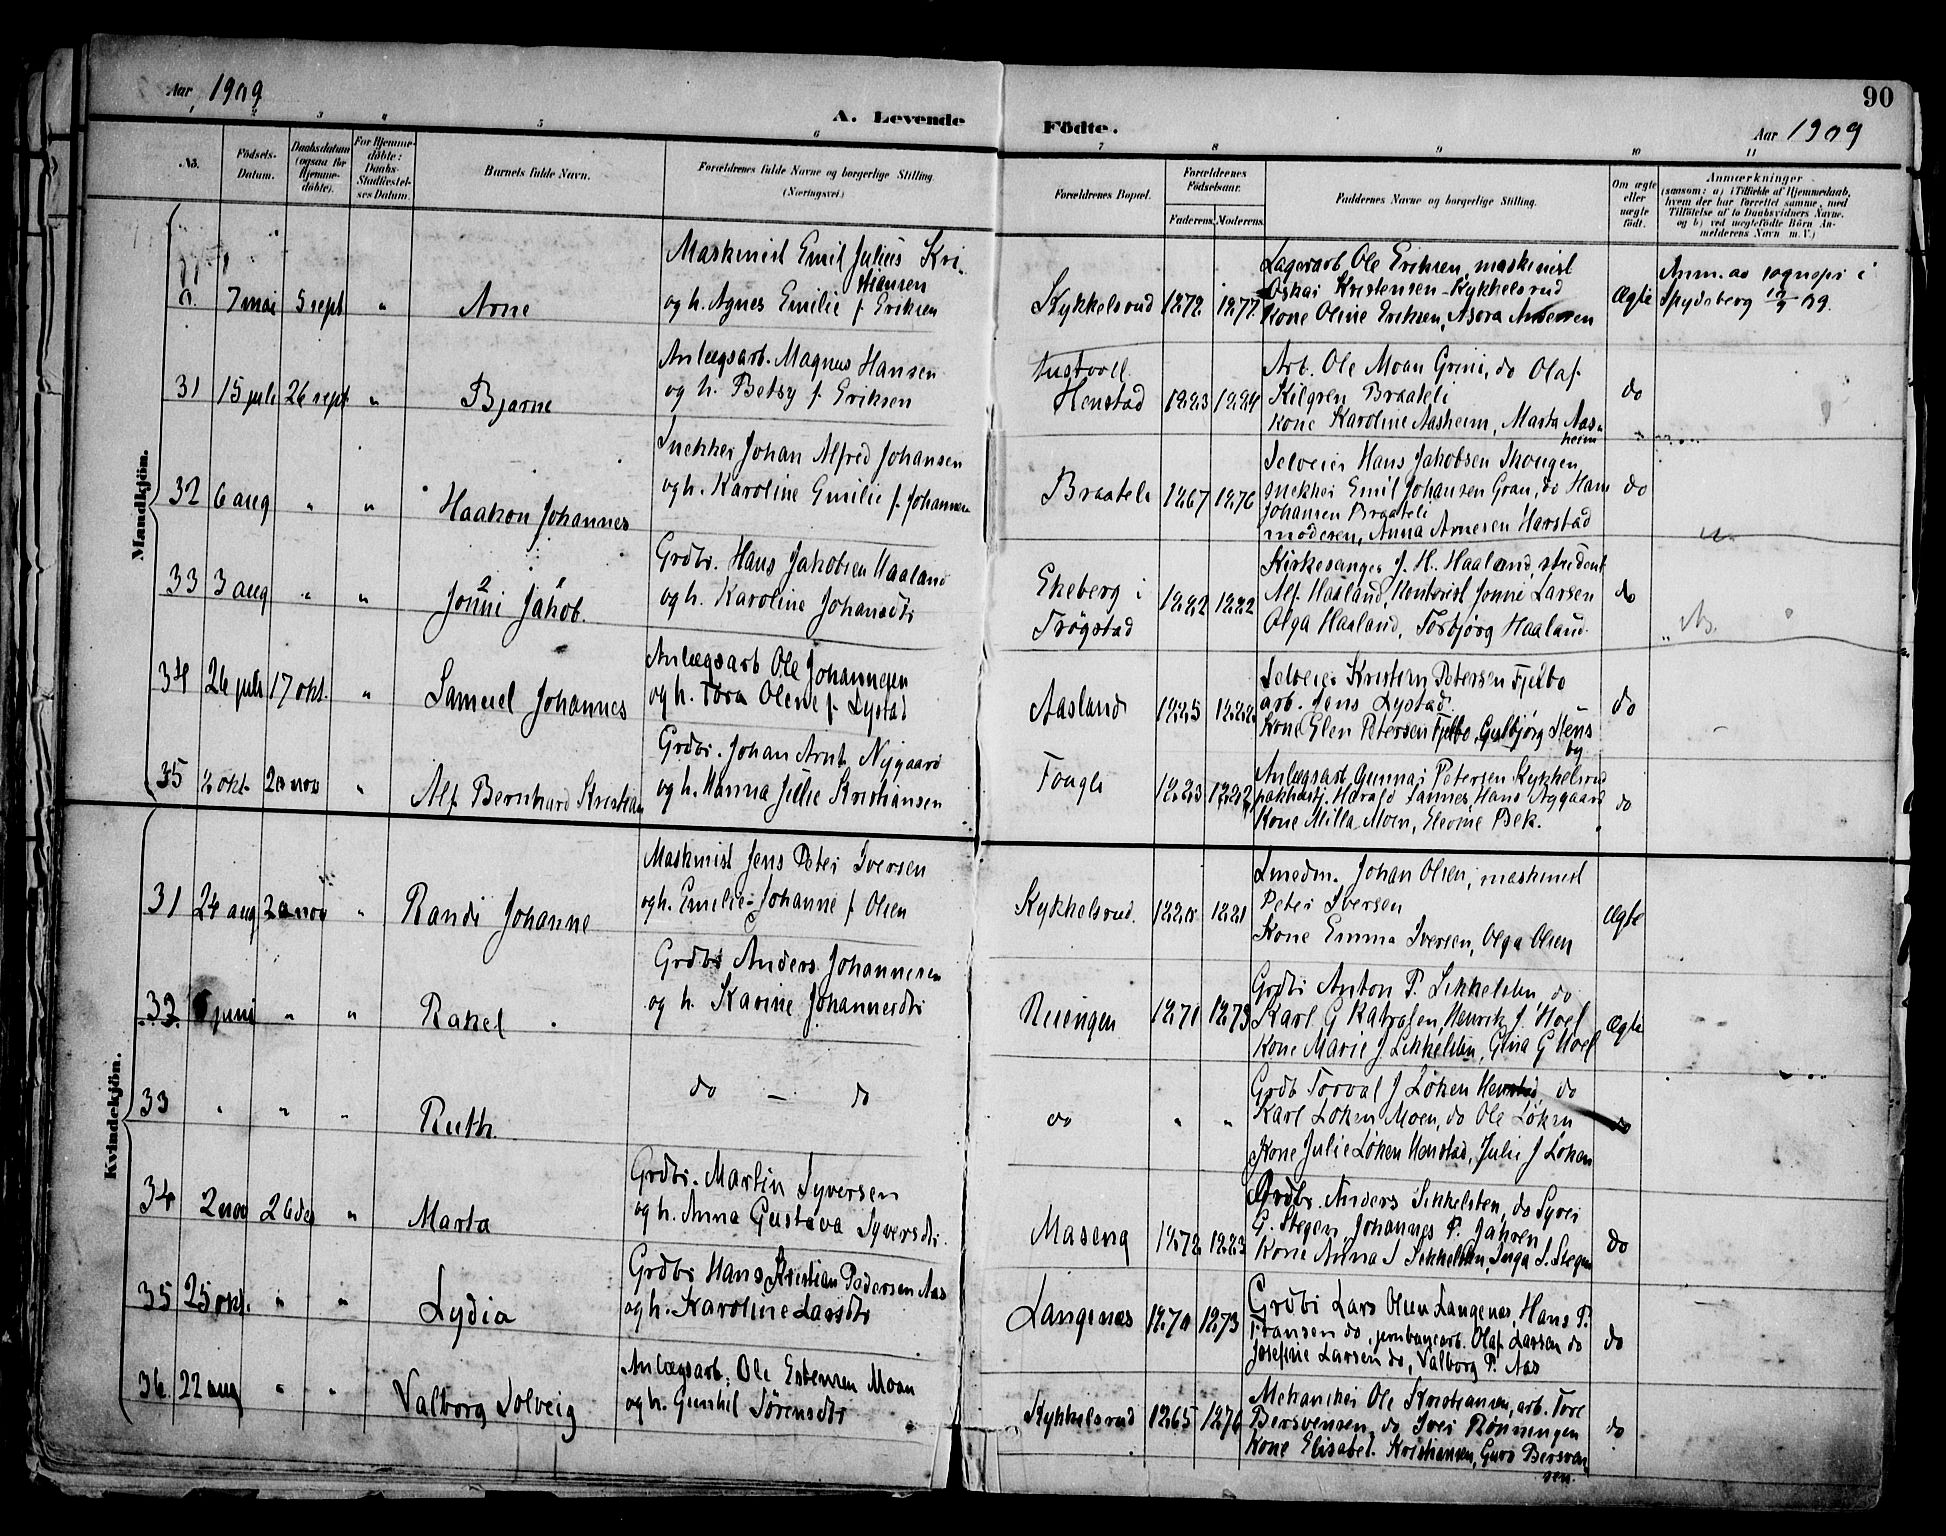 Aar 1909
A. Levende
Födte.
Aar 1909
90
1 2 3 4 5 6 7 8 9 10 11
No.
Födsels-
Datum.
Daabsdatum
(ogsaa for
Hjemme-
döbte).
For Hjemme-
döbte:
Daabs-
Stadfæstel-
ses Datum.
Barnets fulde Navn.
Forældrenes fulde Navne og borgerlige Stilling
(Næringsvei)
Forældrenes Bopæl.
Forældrenes
Födselsaar.
Faderens. Moderens.
Faddernes Navne og borgerlige Stilling.
Om ægte
eller
uægte
födt.
Anmærkninger
(saasom: a) i Tilfælde af Hjemmedaab,
hvem der har forrettet samme, med
Tilföielse af to Daabsvidners Navne.
og b) ved uægtefödte Börn An-
melderens Navn m. V.)
Mandkjön.
7 mai 5 sept " Arne
Maskinist Emil Julius Kri-
stiansen
og h. Agnes Emilie f. Eriksen
Kykkelsrud 1872 1877
Lagerarb Ole Eriksen, maskinist
Oskar Kristensen Kykkelsrud
Kone Oline Eriksen, Asora
Ægte
Anm. av sognepr i
Spydeberg 12/9 09.
31 15 juli 26 sept " Bjarne
Anlægsarb. Magnus Hansen
og h. Betsy f. Eriksen
Henstad 1883 1884
Arb. Ole Moan Grini, do Olaf
Kilgren Braateli
Kone Karoline Aasheim, Marta Aas-
heim
do
32 6 aug " " Haakon Johannes
Snekker Johan Alfred Johansen
og h. Karoline Emilie f. Johannsen
Braateli 1867 1876
Selveier Hans Jakobsen Skougen
snekker Emil Johansen Gran, do Hans
Johansen Braateli
moderen, Anna Arnesen Harstad
do
33 3 aug " " Jonni Jakob.
2 1
Grdbr. Hans Jakobsen Haaland
og h. Karoline Johansdtr
Ekeberg i
Trøgstad 1882 1882
Kirkesanger J. H. Haaland, student
Alf Haaland, Kontorist Jonni Larsen
Olga Haaland, Torbjørg Haaland.
do
34 26 juli 17 okt. " Samuel Johannes
Anlægsarb Ole Johannesen
og h. Tora Olene f. Lystad
Aasland 1885 1888
Selveier Kristian Petersen Fjelbo
arb. Jens Lystad.
Kone Elen Petersen Fjelbo, Gulbjørg Stens
by
do
35 2 okt. 20 nov " Alf Bernhard Kristian
Grdbr. Johan Arnt Nygaard
og h. Hanna Julie Kristiansen
Fougli 1883 1882
Anlægsarb Gunnar Petersen Kykkelsrud
pakhusbj. Harald Hans Nygaard
Kone Milla Moen, Elevine Bek.
do
Kvindekjön.
31 24 aug 20 nov " Randi Johanne
Maskinist Jens Peter Iversen
og h. Emilie Johanne f. Olsen
Kykkelsrud. 1881
Smedm. Johan Olsen, maskinist
Peter Iversen
Kone Emma Iversen, Olga Olsen
Ægte
32 juni " " Rakel
Grdbr Anders Johannesen
og h. Karine Johannesdtr
1871 1873
Grdbr Anton P. Sikkelsten, do
Karl G Henrik J Hoel
Kone Marie J Sikkelsten, Gina G Hoel
Ægte
33 " " " Ruth.
do - do
do " "
Grdb Torval J Løken Henstad, do
Karl Løken Moen, do Ole Løken
Kone Julie Løken Henstad, Julie J Løken
do
34 2 nov 26 des " Marta
Grdbr. Martin Syversen
og h. Anna Gustava Syversdtr.
Maseng 1872 1883
Grdbr. Anders Sikkelsten, do Syver
G. Stegen Johannes P. Jahren
Kone Anna S Sikkelsten, Inga S. Stegen
do
35 25 okt. " " Lydia
Grdbr Hans Kristian Pedersen Aas
og h. Karoline Larsdtr
Langenæs 1870 1873
Grdbr Lars Olsen Langenæs, Hans P.
Fransen do, jernbanearb. Olaf Larsen do
Josefine Larsen do, Valborg P. Aas
do
36. 22 aug " " Valborg Solveig
Anlægsarb. Ole Estensen Moan
og h. Gunhil Sørensdtr
Kykkelsrud 1865 1870
Mekaniker Ole Kristiansen, arb. Tore
Bersvensen, do Iver Rønningen
Kone Elisabet Kristiansen, Guro Bersven-
sen.
do